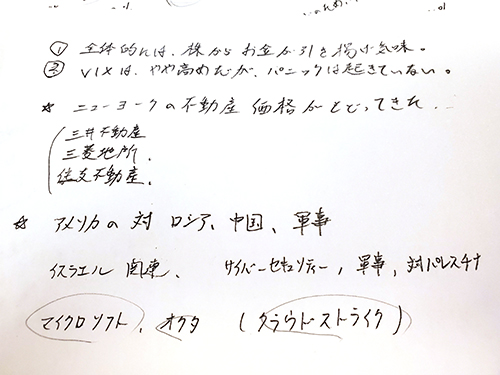 ① 全体的には、株からお金が引き揚げ気味。
② VIXは、やや高めだが、パニックは起きていない。
☆ ニューヨークの不動産価格がもどってきた..
三井不動産
三菱地所.
住友不動産.
☆ アメリカの対ロシア、中国、軍事
イスラエル関連、サイバーセキュリティー, 軍事, 対パレスチナ
マイクロソフト, オクタ (クラウドストライク)